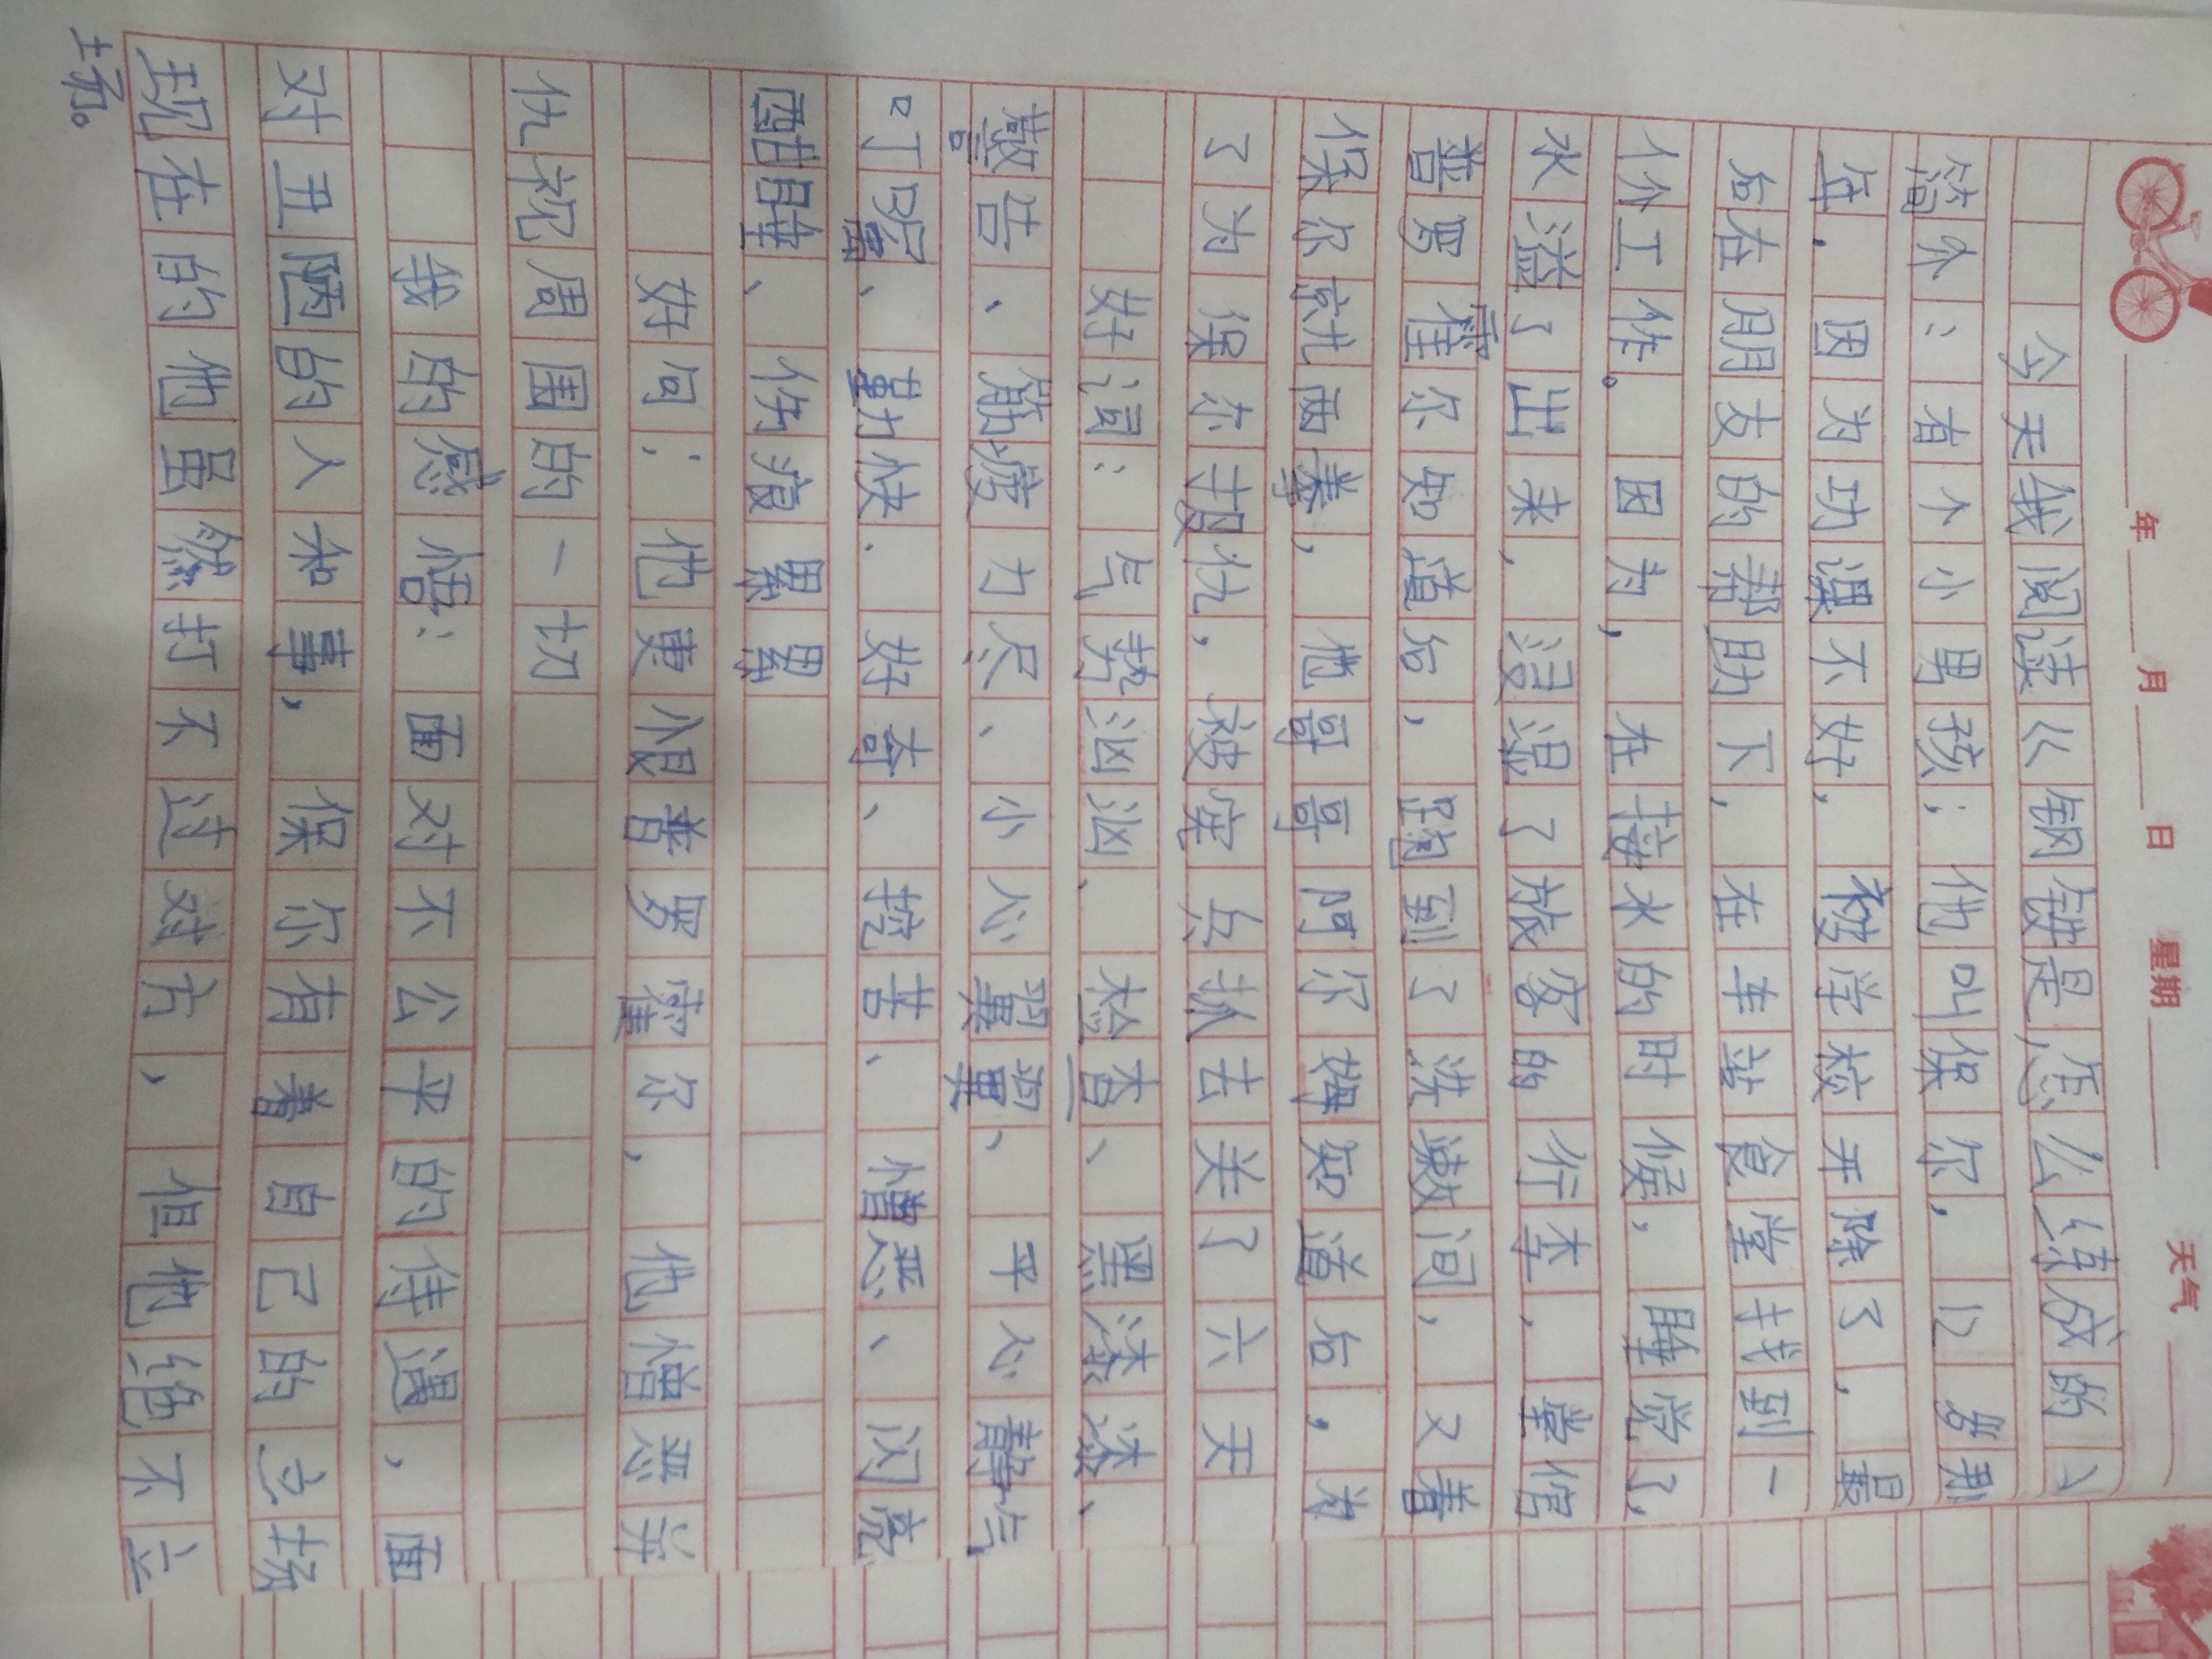 年 月 日 星期 天气
今天我阅读《钢铁是怎么练成的》
简介：有个小男孩；他叫保尔，12岁那
年，因为功课不好，被学校开除了，最
后在朋友的帮助下，在车站食堂找到一
份工作。因为，在接水的时候，睡觉了，
水溢了出来，浸湿了旅客的行李，堂倌
普罗霍尔知道后，跑到了洗漱间，又着
保尔就两拳，他哥哥阿尔焦知道后，为
了为保尔报仇，被宪兵抓去关了六天
好词：气势汹汹、检查、黑漆漆、
警告、筋疲力尽、小心翼翼、平心静气
叮嘱、勤快．好奇、挖苦、憎恶、闪亮
酣睡、伤痕累累
好句：他更恨普罗霍尔，他憎恶并
仇视周围的一切
我的感悟：面对不公平的待遇，面
对丑陋的人和事，保尔有着自己的立场
现在的他虽然打不过对方，但他绝不立
场。